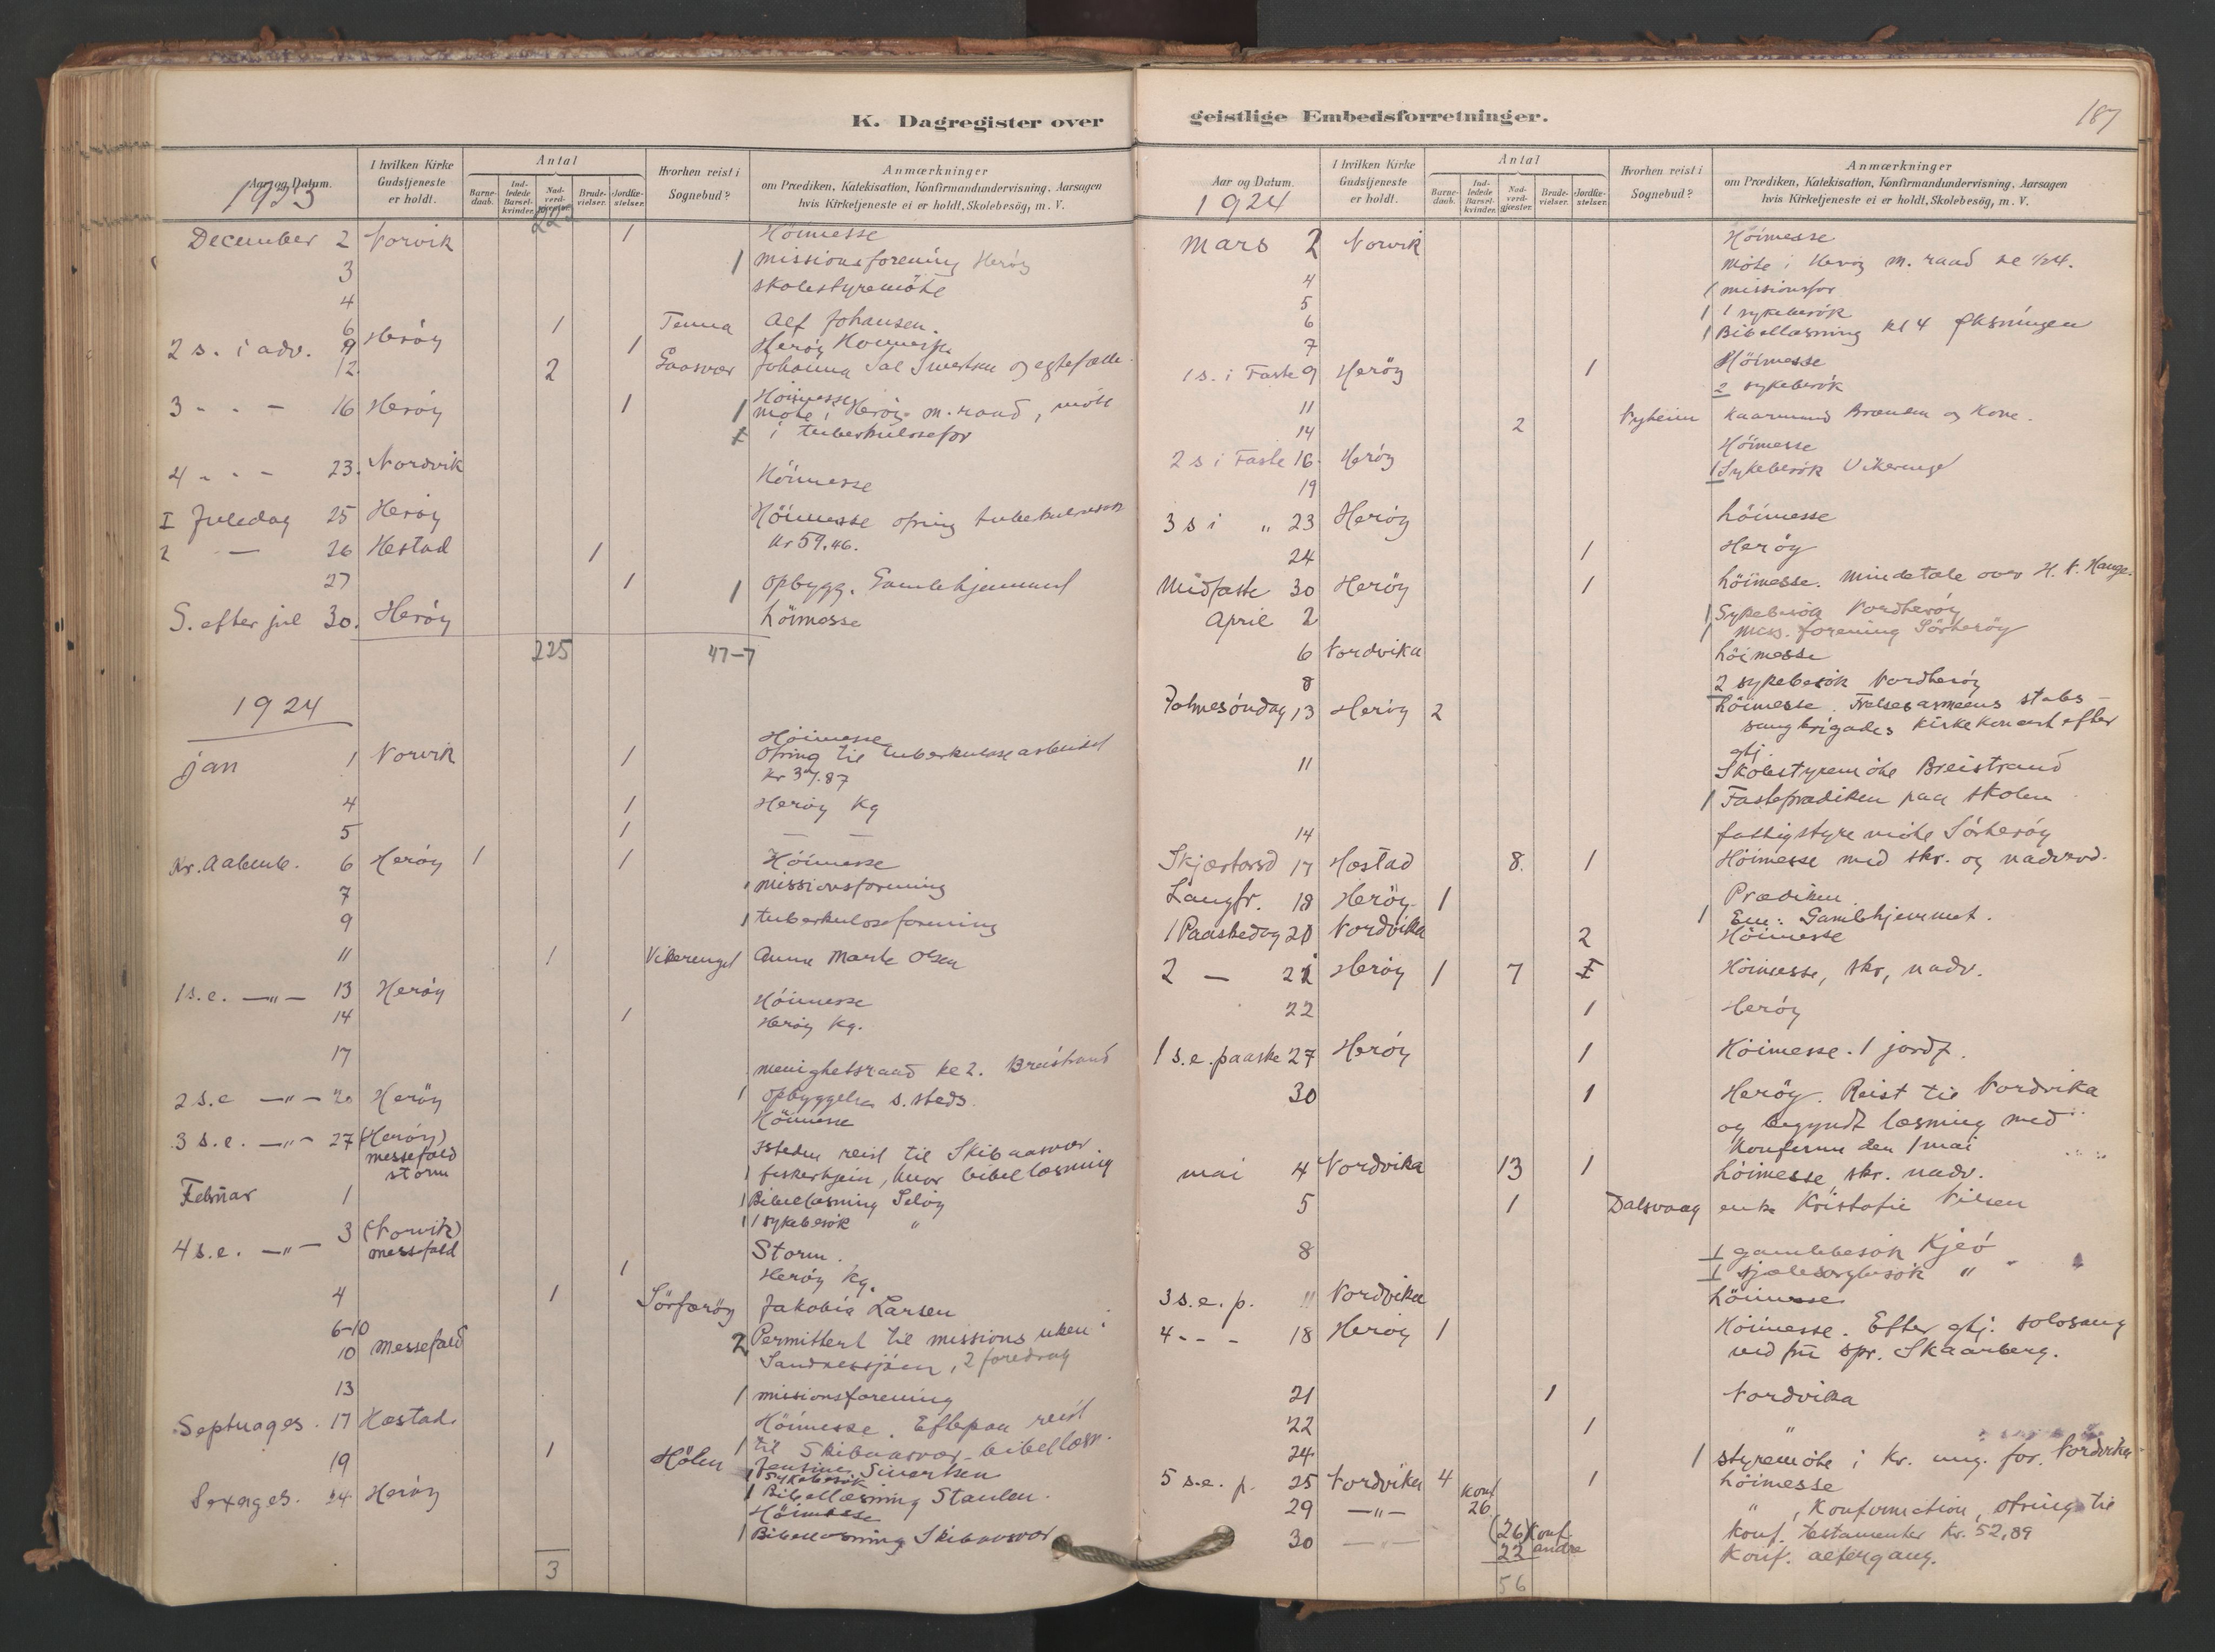 K. Dagregister over
Aar og Datum.
1923
I hvilken Kirke Gudstjeneste er holdt.
Antal
Barne-daab.
Ind-ledede Barsel-kvinder.
Nad-verd-gjester.
Brude-vielser.
Jordfæ-stelser.
Hvorhen reist i Sognebud?
Anmærkninger
om Prædiken, Katekisation, Konfirmandundervisning, Aarsagen
hvis Kirketjeneste ei er holdt, Skolebesög, m. V.
December 2 Norvik 1 Höimesse
3 1 missionsforening Heröy
4 skolestyremöte
6 1 Tenna Alf Johansen.
2 s. i adv. 9 Heröy 1 Heröy Höimesse
12. 2 Gaasvær Johanna Sivertsen og egtefælle
3 - - - 16 Heröy 1 Höimesse
1 möte i Heröy m.raad, möte
1 i tuberkulosefor
4 - - - 23. Nordvik Höimesse
I Juledag 25 Heröy Höimesse ofring tuberkulosesak
Kr 59.46.
2 — 26 Hestad 1
27 1 1 opbygg. Gamlehjemmet
S. efter jul 30. Heröy höimesse
225 47-7
1924
jan 1 Norvik 1 Höimesse
Ofring til tuberkulosearbeidet
Kr 37.87
4 1 Heröy Kg
5 1 — —
Kr. Aabenb. 6 Heröy 1 1 Höimesse
7 1 missionsforening
9 1 tuberkuloseforening
11 1 Vikerenget Anne Marte Olsen
1 s.e. —"— 13 Heröy Höimesse
14 1 Heröy Kg.
17 menighetsraad kl 2. Breistrand
1 opbyggelse s.steds
2 s.e —"— 20 Heröy Höimesse
3 s.e. —"— 27 (Heröy) messefald storm
Isteden reist til Skibaasvær
1 fiskerhjem, hvor bibellæsning
Februar 1 1 Bibellæsning Selöy
1 1 sykebesök "
4 s.e. —"— 3 (Norvik) messefald Storm.
1 Heröy Kg.
4 1 Sörfæröy Jakobia Larsen
6-10 2 Permittert til missionsuken i
10 Messefald Sandnessjöen, 2 foredrag
13 1 missionsforening
Septuages. 17 Hæstad. Höimesse. Efterpaa reist
1 til Skibaasvær - bibellæsn.
19 1 Hölen Jensine Sivertsen
1 sykebesök
1 Bibellæsning Staulen.
Sexages. 24. Heröy Höimesse
1 Bibellæsning Skibaasvær
3
geistlige Embedsforretninger.
187
Aar og Datum.
1924
I hvilken Kirke Gudstjeneste er holdt.
Antal
Barne-daab.
Ind-ledede Barsel-kvinder.
Nad-verd-gjester.
Brude-vielser.
Jordfæ-stelser.
Hvorhen reist i Sognebud?
Anmærkninger
om Prædiken, Katekisation, Konfirmandundervisning, Aarsagen
hvis Kirketjeneste ei er holdt, Skolebesög, m. V.
Mars 2 Norvik Höimesse
möte i Heröy m. raad
4 1 missionsfor
5 1 1 sykebesök
6 1 Bibellæsning kl 4 Öksningen
7
1 s. i Faste 9 Heröy 1 Höimesse
11 2 sykebesök
14 2 Nyheim Kaarmund Brendsen og Kone.
2 s i Faste 16. Heröy Höimesse
19 1 Sykebesök Vikerenget
3 s i " 23 Heröy höimesse
24 1 Heröy
Midfaste 30 Heröy 1 höimesse. Mindetale over H. N. Hauge.
April 2 1 Sykebesök Nordheröy
1 miss. forening Sörheröy
6 Nordvika höimesse
8 2 sykebesök Nordheröy
Palmesöndag 13 Heröy 2 höimesse. Frelsesarmeens stabs-
sangbrigades kirkekoncert efter
gtj.
11 Skolestyremöte Breistrand
1 Fasteprædiken paa skolen
14 fattigstyremöte Sörheröy
Skjærtorsd 17 Hæstad 8. 1 Höimesse med skr. og nadverd.
Langfr. 18 Heröy 1 Prædiken.
1 Em: Gamlehjemmet.
1 Paaskedag 20 Nordvika 2 Höimesse
2 — 21 Heröy 1 7 1 Höimesse, skr, nadv.
22 1 Heröy
1 s.e. paaske 27 Heröy 1 Höimesse. 1 jordf.
30 1 Heröy. Reist til Nordvika
og begyndt læsning med
Konfirm den 1 mai
mai 4 Nordvika 13 1 höimesse, skr. nadv.
5 1 Dalsvaag enke Kristofie Nilsen
8 1 gamlebesök Kjeö
1 sjælesorgbesök "
3 s.e. p. 11 Nordvika höimesse
4 - - - 18 Heröy 1 Höimesse. Efter gtj. solosang
ved fru spr. Skaarberg.
21 1 Nordvika
22 1 "
24 1 styremöte i kr. ung. for. Nordvika
5 s.e. p. 25 Nordvika 4 1 höimesse
29 —"— Konf 26 " , Konfirmation, ofring til
konf. testamenter Kr. 52,89
30 —"— (26) Konf. 22 andre Konf. altergang.
56